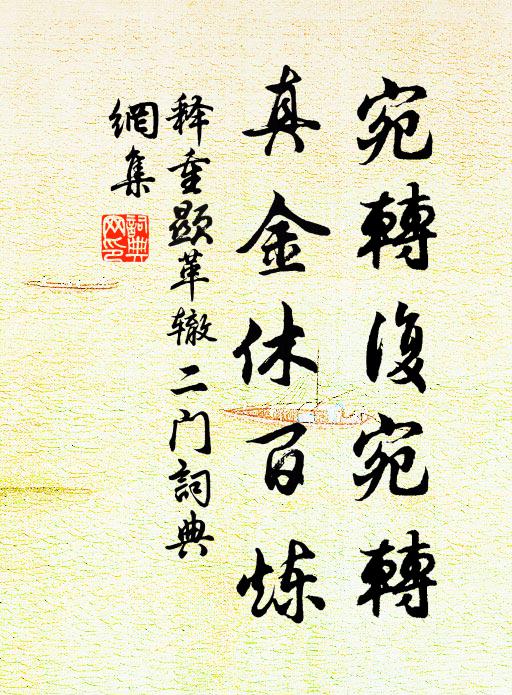 宛轉復宛轉
真金休百炼
释重顯革辙二门詞典
網集
詞典网印